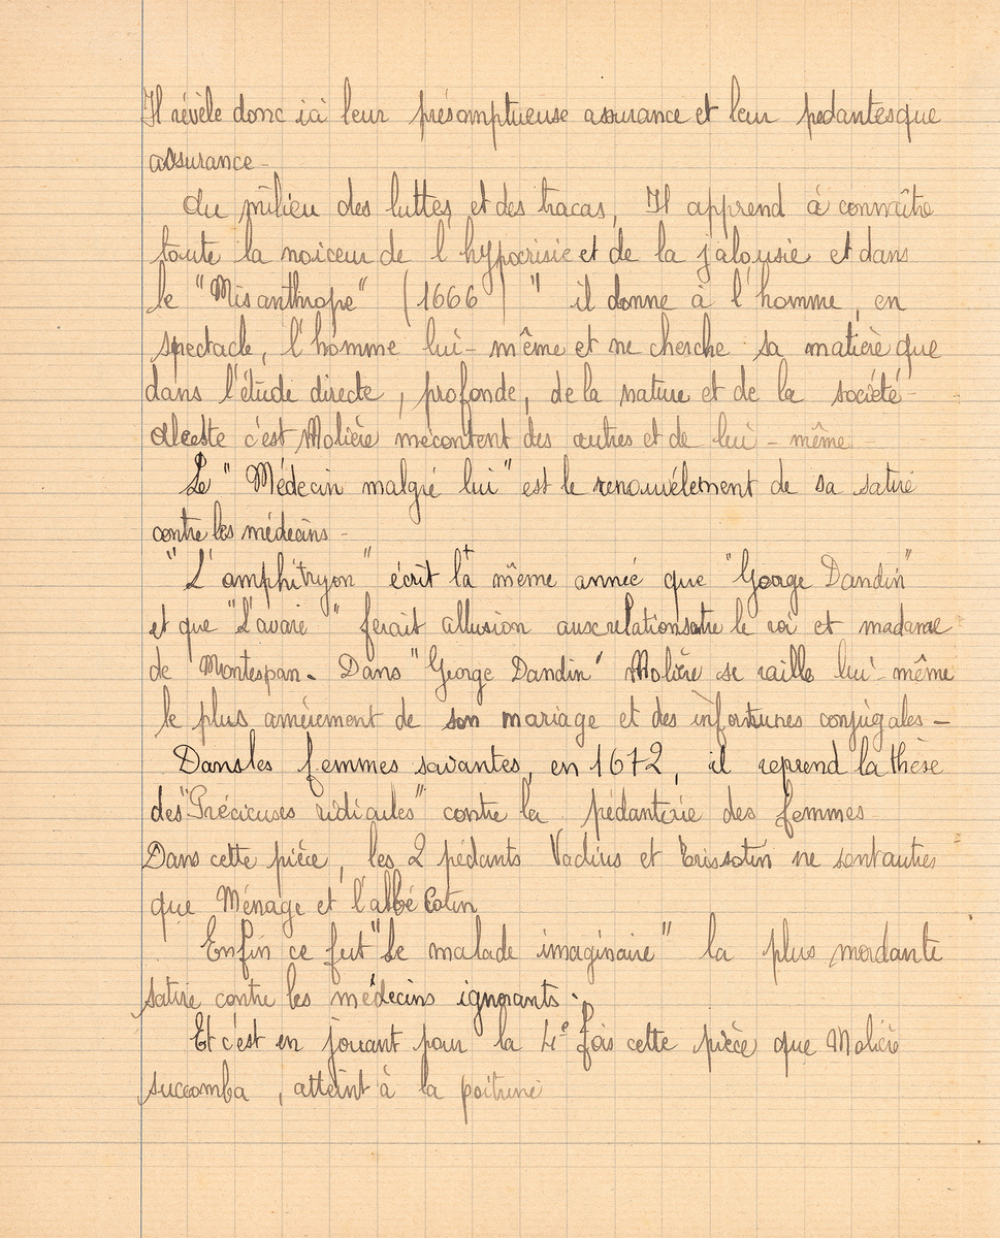 Il révèle donc ici leur présomptueuse assurance et leur pedantesque
assurance -
Au milieu des luttes et des tracas, Il apprend à connaître
toute la noiceur de l'hypocrisie et de la jalousie et dans
le "Misanthrope" (1666) " il donne à l'homme, en
spectacle, l'homme lui-même et ne cherche sa matière que
dans l'étude directe, profonde, de la nature et de la société -
Alceste c'est Molière mécontent des autres et de lui-même
Le "Médecin malgré lui" est le renouvélement de sa satire
contre les médecins -
"L'amphitryon" écrit la même année que "George Dandin"
et que "L'avare" ferait allusion aux relations entre le roi et madame
de Montespan. Dans "George Dandin" Molière se raille lui-même
le plus amèrement de son mariage et des infortunes conjugales -
Dans les femmes savantes, en 1672, il reprend la thèse
des "Précieuses ridicules" contre la pédanterie des femmes
Dans cette pièce, les 2 pédants Vadius et Trissotin ne sont autres
que Ménage et l'abbé Cotin
Enfin ce fut "Le malade imaginaire" la plus mordante
satire contre les médecins ignorants.
Et c'est en jouant pour la 4e fois cette pièce que Molière
succomba, atteint à la poitrine